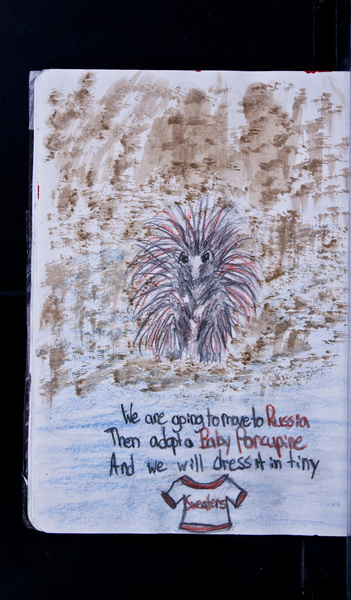 We are going to move to Russia
Then adopt a Baby Porcupine
And we will dress it in tiny
Sweaters